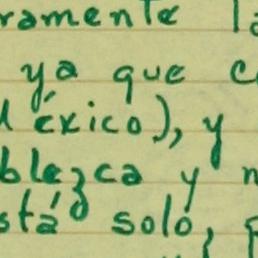 ramente la
ya que c
éxico), y
blezca y n
stá solo, p